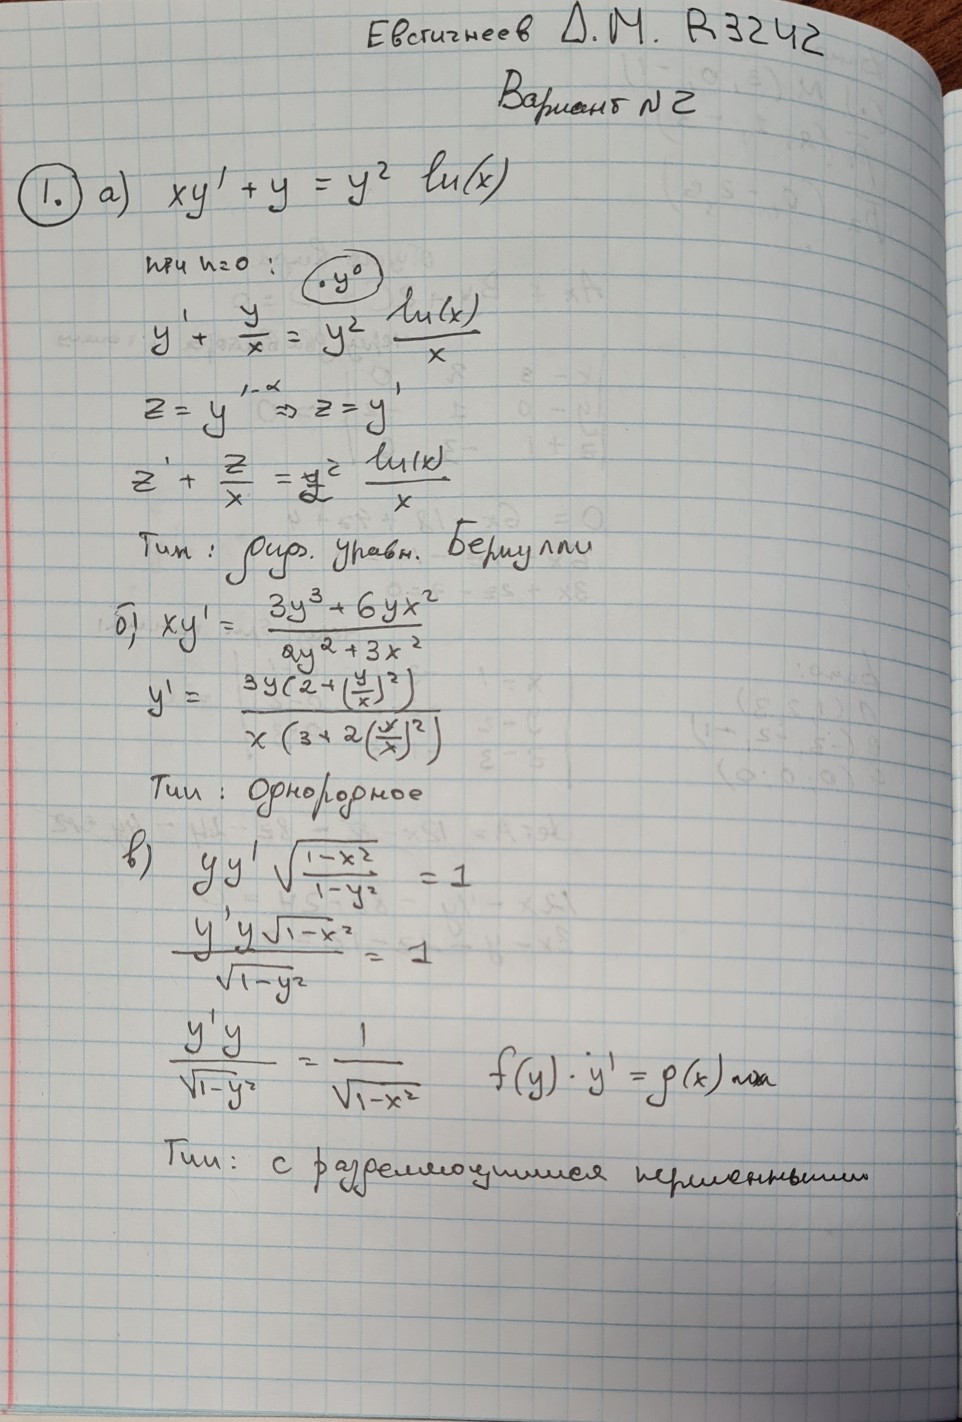 Евстигнеев Д.М. R3242
Вариант №2
1. а) xy' + y = y² ln(x)
при n=0: · y⁰
y' + y/x = y² ln(x)/x
z = y^(1-α) => z = y'
z' + z/x = ² ln(x)/x
Тип: диф. уравн. Бернулли
б) xy' = (3y³ + 6yx²)/(2y² + 3x²)
y' = 3y(2+(y/x)²)/(x(3+2(y/x)²))
Тип: Однородное
в) yy' √((1-x²)/(1-y²)) = 1
y'y√(1-x²)/√(1-y²) = 1
y'y/√(1-y²) = 1/√(1-x²) f(y)·y' = g(x)
Тип: с разделяющимися переменными